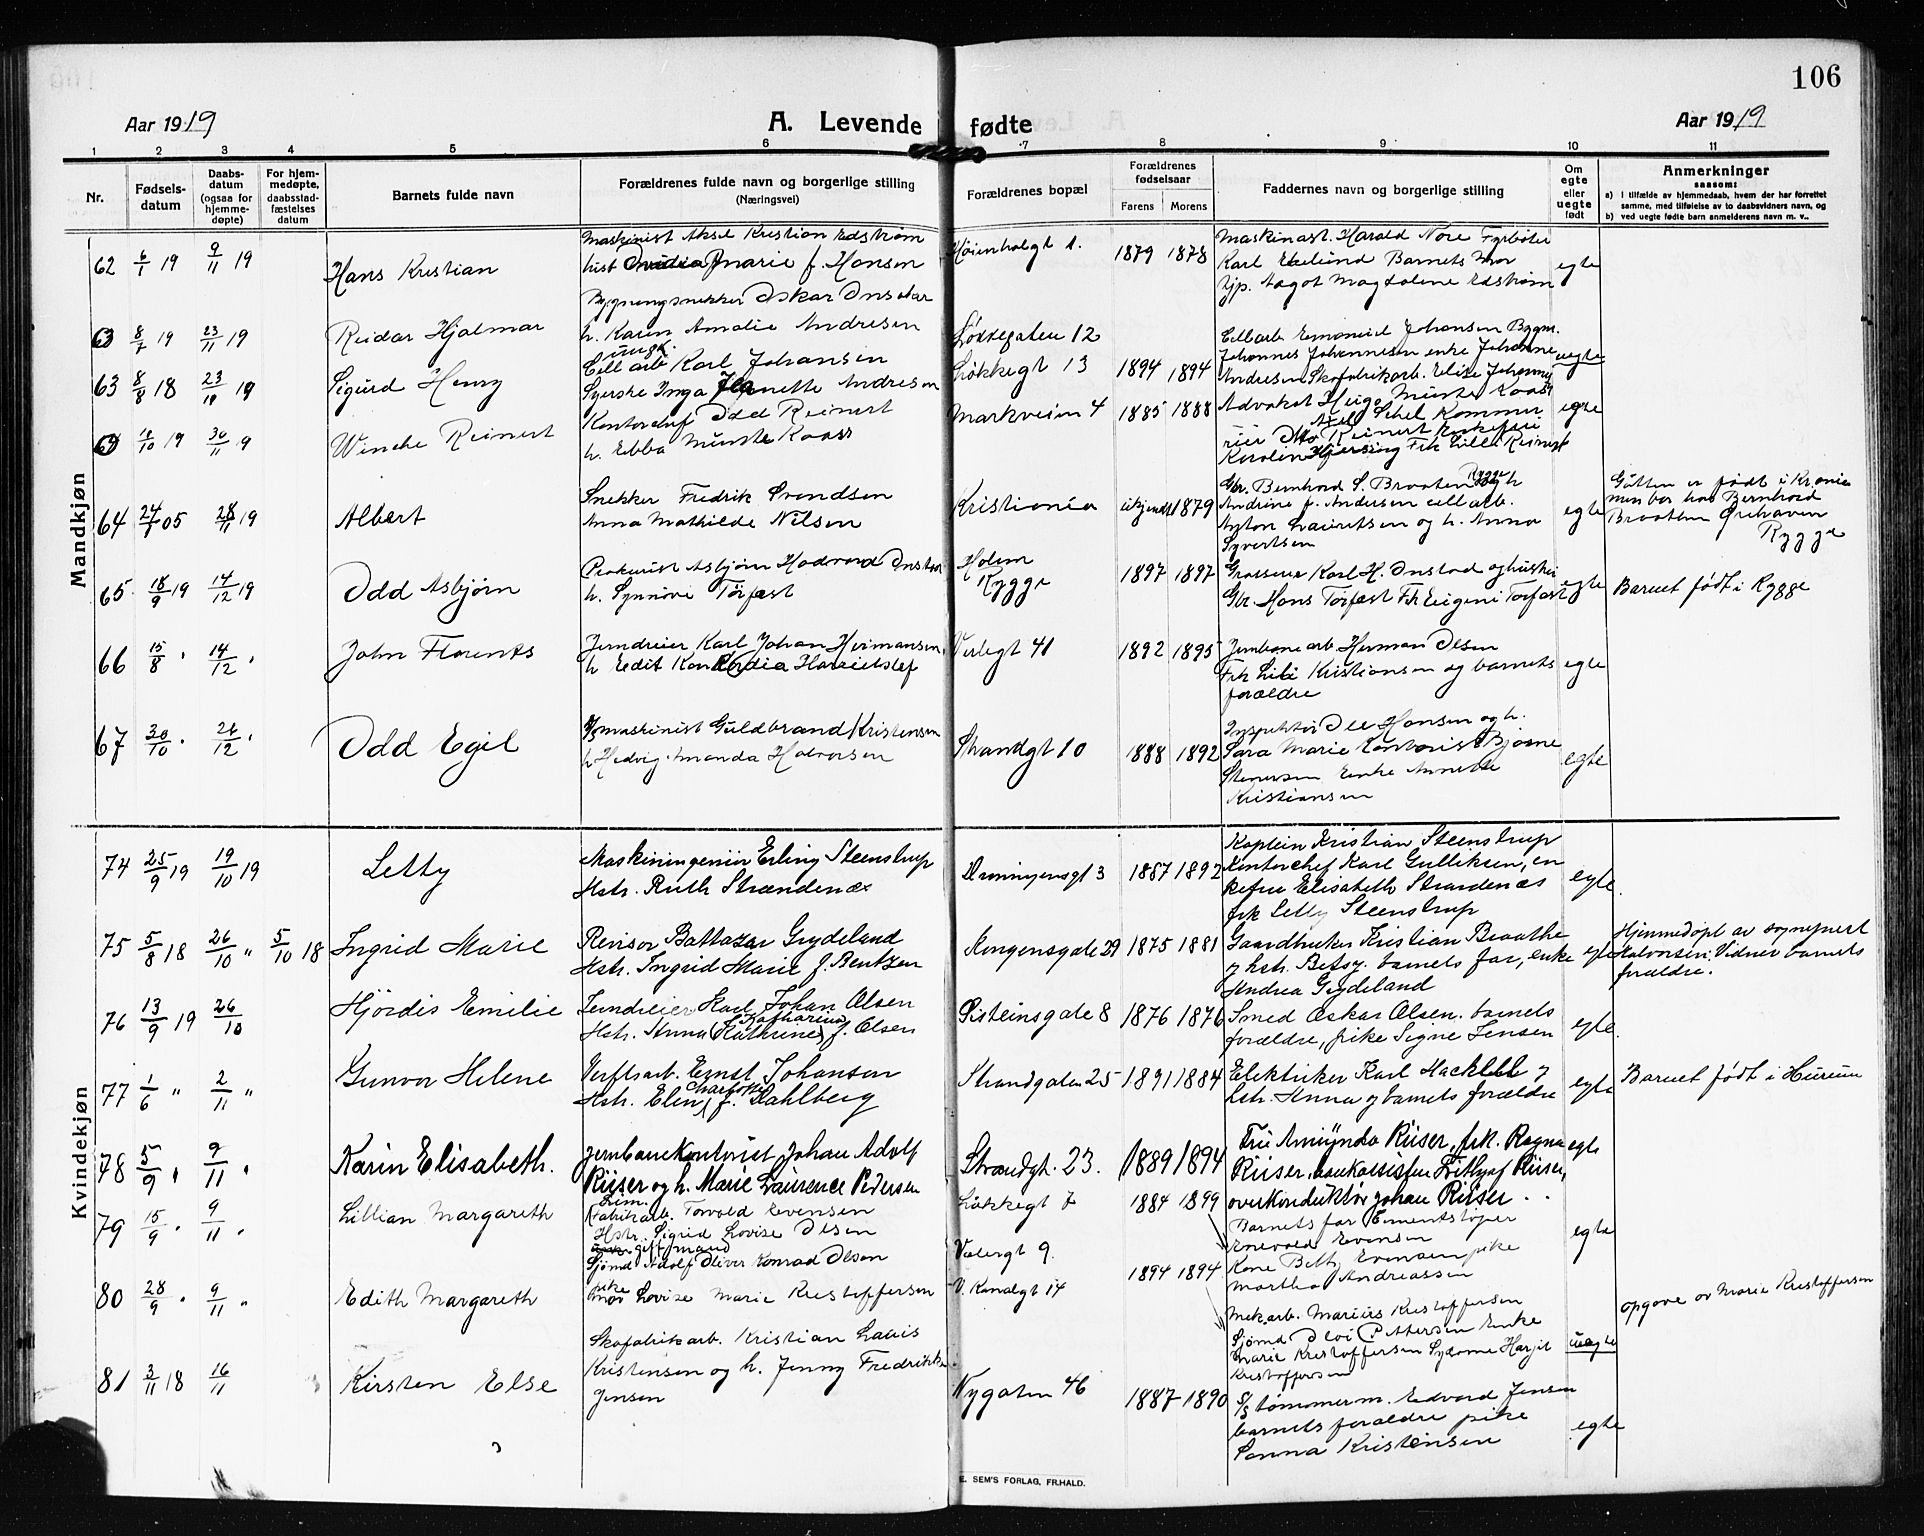 106
Aar 1919
A. Levende fødte
Aar 1919
1 2 3 4 5 6 7 8 9 10 11
Nr.
Fødsels-
datum
Daabs-
datum
(ogsaa for
hjemme-
døpte)
For hjem-
medøpte,
daabsstad-
fæstelses
datum
Barnets fulde navn
Forældrenes fulde navn og borgerlige stilling
(Næringsvei)
Forældrenes bopæl
Forældrenes
fødselsaar
Farens Morens
Faddernes navn og borgerlige stilling
Om
egte
eller
uegte
født
Anmerkninger
saasom:
a) i tilfælde av hjemmedaab, hvem der har forrettet
samme, med tilføielse av to daabsvidners navn, og
b) ved uegte fødte barn anmelderens navn m. v..
Mandkjøn
62 6/1 19 9/11 19
Hans Kristian
Maskinist Aksel Kristian Edstrøm
Marie f. Hansen
1. 1879 1878
Maskinast. Harald Nore Fyrbøter
Karl Barnets mor
Aagot Magdalene Edstrøm
egte
63 8/7 19 23/11 19
Reidar Hjalmar
Bygningssnekker Oskar
h. Karen Amalie Andresen
12
63 8/8 18 23/11 19
Sigurd Henry
ungk.
Cell arb Karl Johansen
Syerske Inga Jeanette Andresen
Løkkegt 13
1894 1894
Cellarb Emanuel Johansen Bygm.
Johannes Johannesen enke Johanne
Andresen Skofabrikarb. Elise Johannes
uegte
10/10 19 30/11 9
Wincke Reinert
Kontorchef Odd Reinert
h. Ebba Münster Kaas
Markveien 4
1885 1888
Advokat Heigo Münster Kaas
Axel Kommer
Otto Reinert
Frk Lilli Reinert
egte
64 24/7 05 28/11 19
Albert
Snekker Fredrik Svendsen
Anna Mathilde Nilsen
Kristiania
1879
Gbr. Bernhard S. Braaten Rygge
Andrine f. Andersen cell arb.
Anton Lauritsen og h. Anna
Syvertsen
egte
Gutten er født i Kr.ania
men bor hos Bernhard
Braathen Ørehaven
Rygge
65 18/9 19 14/12 19
Odd Asbjørn
Prokurist Asbjørn Onstad
h. Synnøve Torfæst
Rygge
1897 1897
Grosserer Karl H. Onstad og hustru
Gbr. Hans Torfæst Frk Eugeni Torfæst
egte
Barnet født i Rygge
66 15/8 " 14/12 "
John Florents
Jerndreier Karl Johan Hermansen
h Edit Konkordia
Verlegt 41
1892 1895
Jernbanearb Herman Olsen
Frk Lili Kristiansen og barnets
forældre
egte
67 30/10 " 26/12 "
Odd Egil
maskinist Guldbrand Kristensen
h Hedvig Amanda Halvorsen
Strandgt 10
1888 1892
Inspektør Ole Hansen og h.
Sara Marie Kontorist Bjarne
Stenersen Enke Annette
Kristiansen
egte
Kvindekjøn
74 25/9 19 19/10 19
Letty
Maskiningeniør Erling Steenstrup
Hstr. Ruth Strandenæs
Dronningensgt 3
1887 1892
Kaptein Kristian Steenstrup
Kontorchef Karl Gulliksen, en
kefru Elisabeth Strandenæs
frk Letty Steenstrup
egte.
75 5/8 18 26/10 " 5/10 18
Ingrid Marie
Revisor Baltazar Grydeland
Hstr. Ingrid Marie f. Bentzen
Kongensgate 29
1875 1881
Gaardbruker Kristian Braathe
og hstr. Betsy. barnets far, enke
Andrea Grydeland
egte
Hjemmedøpt av sogneprest
Halvorsen; Vidner barnets
forældre.
76 13/9 19 26/10
Hjördis Emilie
Jerndreier Karl Johan Olsen
Katharina
Hstr. Anna (Kathrine) f. Olsen
8
1876 1876
Smed Oskar Olsen. barnets
forældre, pike Signe Jensen
egte.
77 1/6 " 2/11 "
Gunvor Helene
Verftsarb. Ernst Johansen
Charlotte
Hstr. Elen f. Dahlberg
Strandgaten 25
1891 1884
Elektriker Karl og
hstr. Anna og barnets forældre
egte
Barnet født i Hurum
78 5/9 " 9/11 "
Karin Elisabeth.
Jernbanekontorist Johan Adolf
Riiser og h. Marie Laurence Pedersen
Strandgt. 23.
1889 1894
Fru Amynda Riiser, frk. Ragna
Riiser, Fritjof Riiser,
overkonduktør Johan Riiser . .
egte
79 15/9 " 9/11 "
Lillian Margareth
Lim.
Fabrikarb. Torvald Evensen
Hstr. Sigrid Lovise Olsen
Løkkegt 7
1884 1899
Barnets far Cementstøper
Enevold Evensen
Kone Betty Evensen pike
Martha Andreassen
egte
80 28/9 " 9/11 "
Edith Margareth
gift mand
Sjømd Adolf Oliver Konrad Olsen
pike
Lovise Marie Kristoffersen
Valergt 9.
V. Kanalgt 14
1894 1894
Mek.arb. Marius Kristoffersen
Sjømd Olai Pettersen Enke
Marie Kristoffersen
Kristoffersen
uegte
opgave av Marie Kristoffersen
81 3/11 18 16/11
Kirsten Else
Skofabrikarb. Kristian Lauis
Kristensen og h. Jenny Fredrikke
Jensen
Nygaten 46
1887 1890
tømmerm. Edvard Jensen
barnets forældre pike
Sanna Kristensen
egte
E. SEM'S FORLAG, FR.HALD.